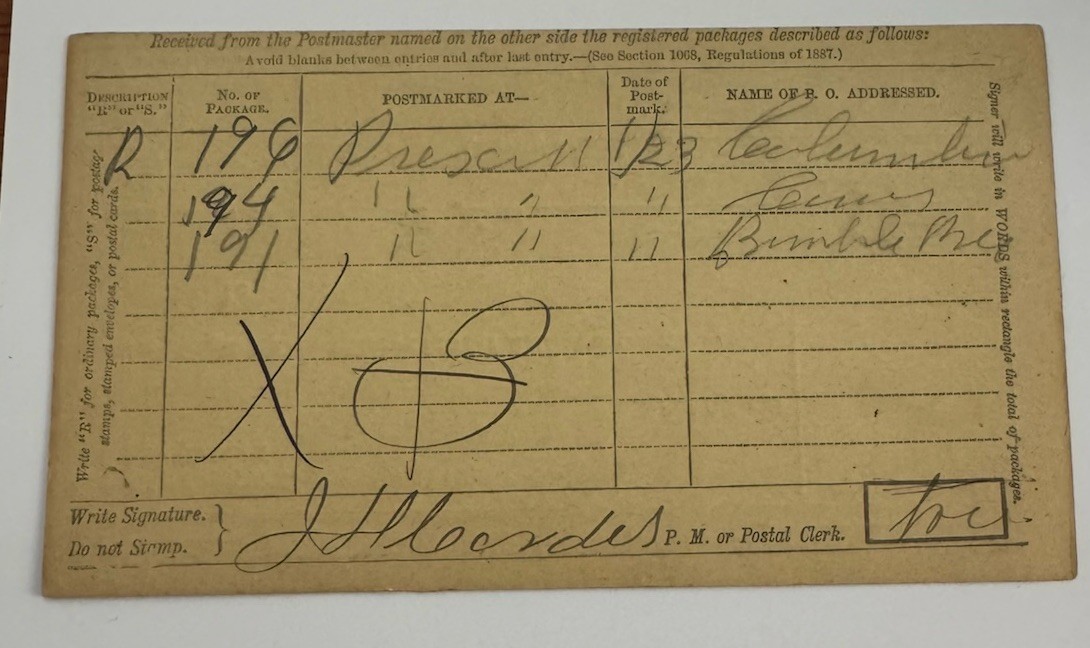 Received from the Postmaster named on the other side the registered packages described as follows:
Avoid blanks between entries and after last entry.—(See Section 1068, Regulations of 1887.)
DESCRIPTION "R" or "S." No. OF PACKAGE. POSTMARKED AT— Date of Post-mark. NAME OF P. O. ADDRESSED.
R 196 Prescott 1/23 Columbia
194 " " "
191 " " " Bumble Bee
X
Write "R" for ordinary packages, "S" for postage
stamps, stamped envelopes, or postal cards.
Signer will write in WORDS within rectangle the total of packages.
Write Signature.
Do not Stamp.
J H P. M. or Postal Clerk.